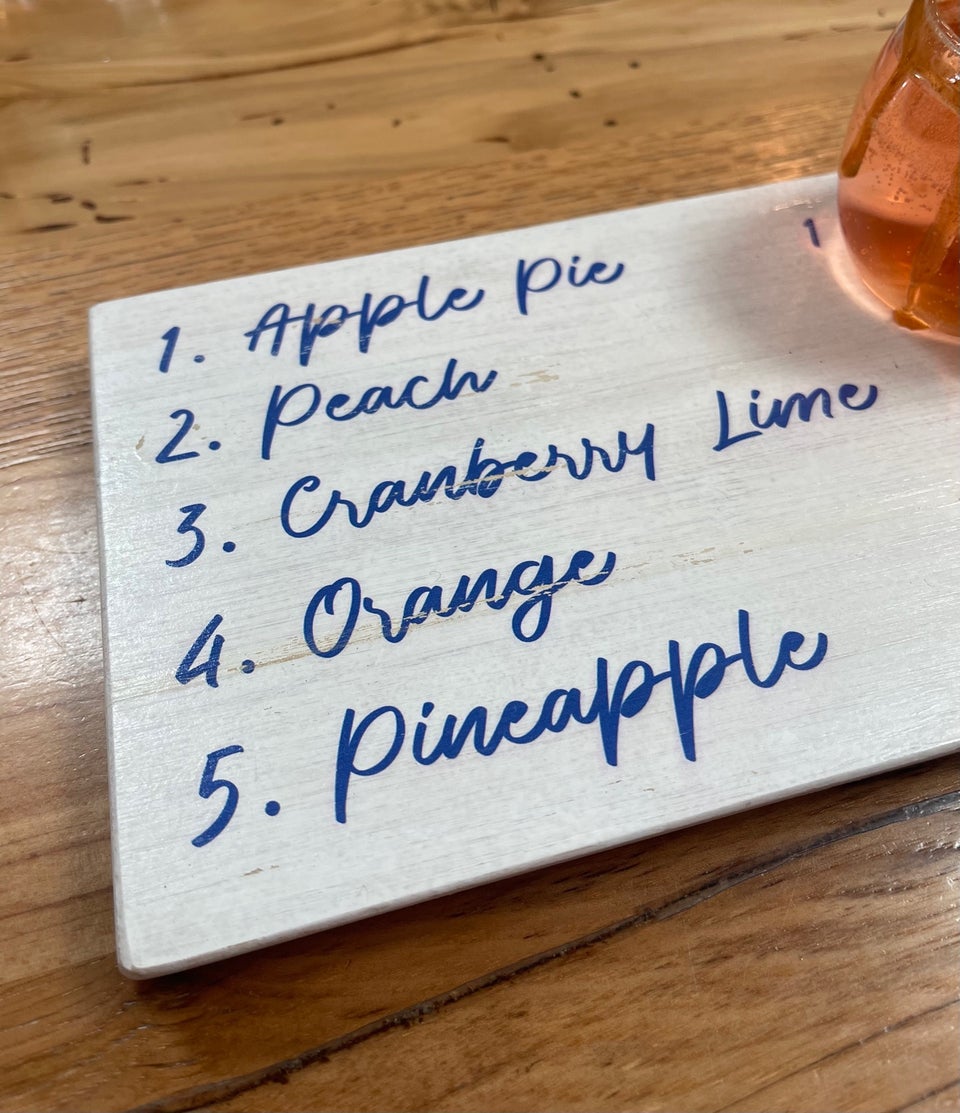 1. Apple Pie
1
2. Peach
3. Cranberry Lime
4. Orange
5. Pineapple